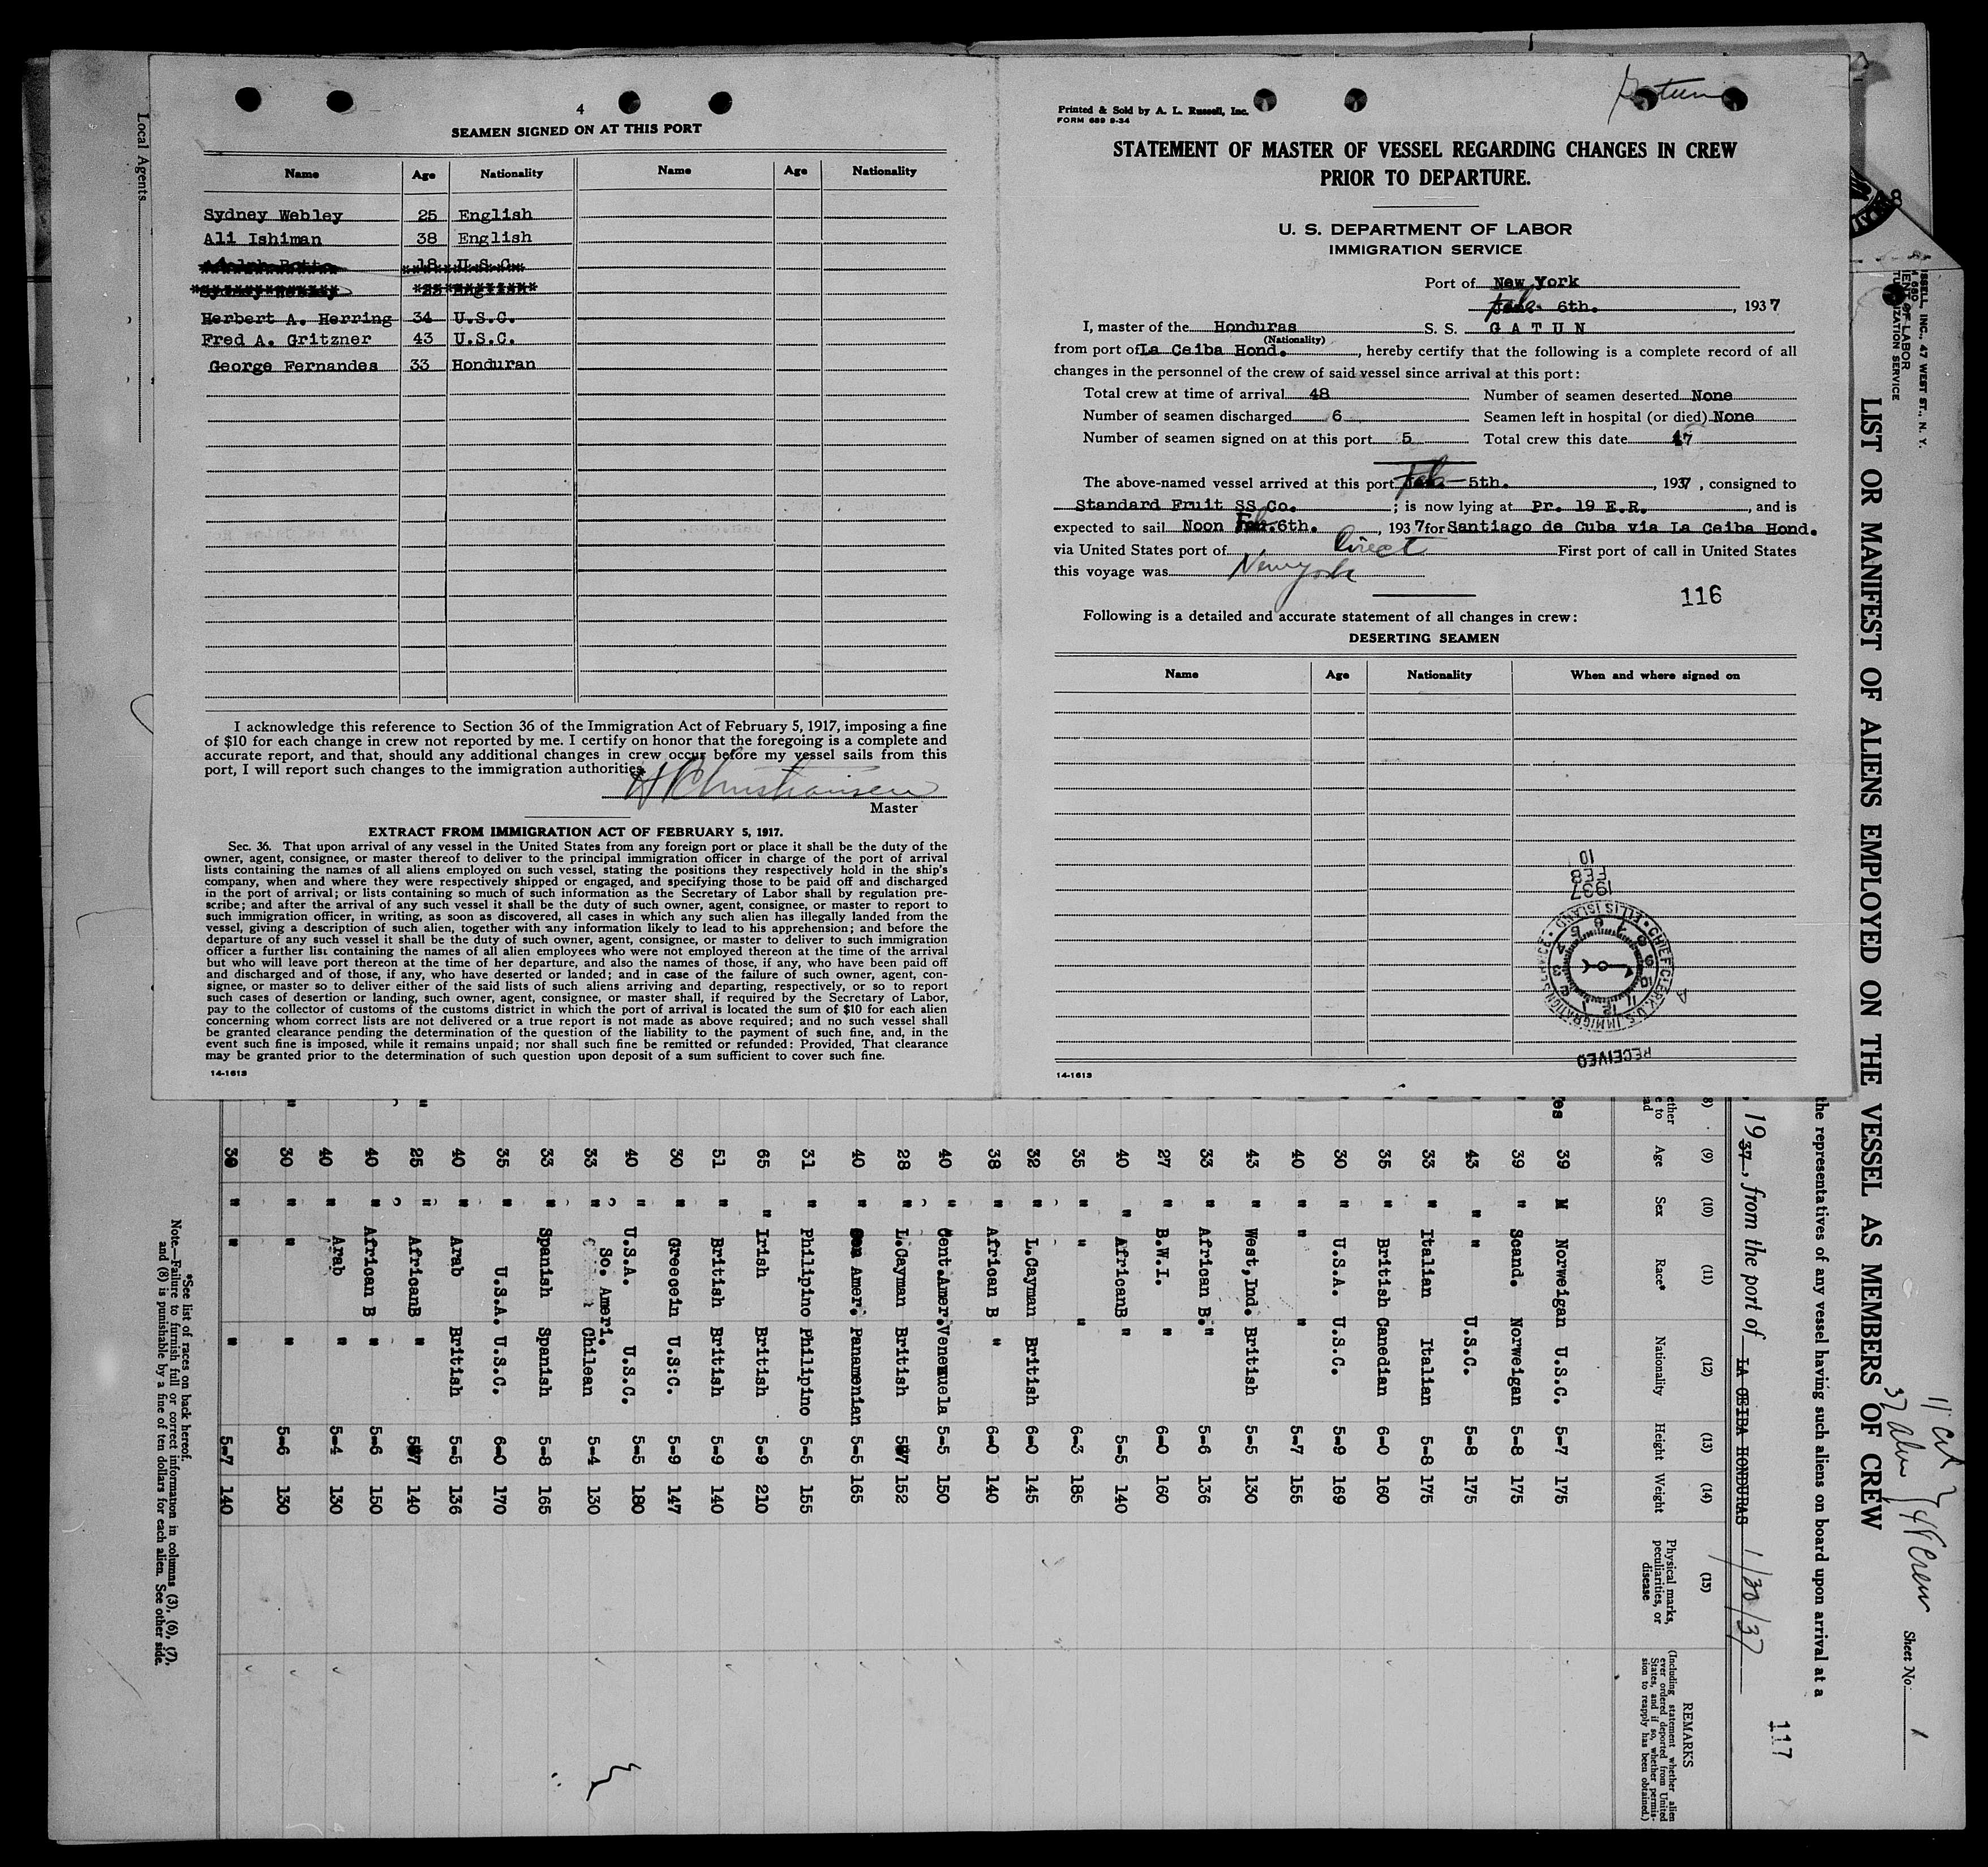 4
SEAMEN SIGNED ON AT THIS PORT
Name Age Nationality Name Age Nationality
Sydney Webley 25 English
Ali Ishiman 38 English
18 U.S.C.
Sydney Webley 25 English
Herbert A. Herring 34 U.S.C.
Fred A. Gritzner 43 U.S.C.
George Fernandes 33 Honduran
I acknowledge this reference to Section 36 of the Immigration Act of February 5, 1917, imposing a fine
of $10 for each change in crew not reported by me. I certify on honor that the foregoing is a complete and
accurate report, and that, should any additional changes in crew occur before my vessel sails from this
port, I will report such changes to the immigration authorities.
H Christiansen
Master
EXTRACT FROM IMMIGRATION ACT OF FEBRUARY 5, 1917.
Sec. 36. That upon arrival of any vessel in the United States from any foreign port or place it shall be the duty of the
owner, agent, consignee, or master thereof to deliver to the principal immigration officer in charge of the port of arrival
lists containing the names of all aliens employed on such vessel, stating the positions they respectively hold in the ship's
company, when and where they were respectively shipped or engaged, and specifying those to be paid off and discharged
in the port of arrival; or lists containing so much of such information as the Secretary of Labor shall by regulation pre-
scribe; and after the arrival of any such vessel it shall be the duty of such owner, agent, consignee, or master to report to
such immigration officer, in writing, as soon as discovered, all cases in which any such alien has illegally landed from the
vessel, giving a description of such alien, together with any information likely to lead to his apprehension; and before the
departure of any such vessel it shall be the duty of such owner, agent, consignee, or master to deliver to such immigration
officer a further list containing the names of all alien employees who were not employed thereon at the time of the arrival
but who will leave port thereon at the time of her departure, and also the names of those, if any, who have been paid off
and discharged and of those, if any, who have deserted or landed; and in case of the failure of such owner, agent, con-
signee, or master so to deliver either of the said lists of such aliens arriving and departing, respectively, or so to report
such cases of desertion or landing, such owner, agent, consignee, or master shall, if required by the Secretary of Labor,
pay to the collector of customs of the customs district in which the port of arrival is located the sum of $10 for each alien
concerning whom correct lists are not delivered or a true report is not made as above required; and no such vessel shall
be granted clearance pending the determination of the question of the liability to the payment of such fine, and, in the
event such fine is imposed, while it remains unpaid; nor shall such fine be remitted or refunded: Provided, That clearance
may be granted prior to the determination of such question upon deposit of a sum sufficient to cover such fine.
14-1613
Gatun
Printed & Sold by A. L. Russell, Inc.
FORM 689 9-34
STATEMENT OF MASTER OF VESSEL REGARDING CHANGES IN CREW
PRIOR TO DEPARTURE.
U. S. DEPARTMENT OF LABOR
IMMIGRATION SERVICE
Port of New York
Feb. 6th., 1937
I, master of the Honduras S. S. GATUN
(Nationality)
from port of La Ceiba Hond., hereby certify that the following is a complete record of all
changes in the personnel of the crew of said vessel since arrival at this port:
Total crew at time of arrival 48 Number of seamen deserted None
Number of seamen discharged 6 Seamen left in hospital (or died) None
Number of seamen signed on at this port 5 Total crew this date 47
The above-named vessel arrived at this port Feb. 5th., 1937, consigned to
Standard Fruit SS Co.; is now lying at Pr. 19 E.R., and is
expected to sail Noon Feb. 6th., 1937 for Santiago de Cuba via La Ceiba Hond.
via United States port of Direct First port of call in United States
this voyage was New york
116
Following is a detailed and accurate statement of all changes in crew:
DESERTING SEAMEN
Name Age Nationality When and where signed on
RECEIVED
CHIEF CLERK U.S. IMMIGRATION SERVICE · ELLIS ISLAND
1937
FEB
10
14-1613
Local Agents
SSELL, INC., 47 WEST ST., N. Y.
LIST OR MANIFEST OF ALIENS EMPLOYED ON THE VESSEL AS MEMBERS OF CREW
11 cit
37 alien } 48 Crew
Sheet No. 1
the representatives of any vessel having such aliens on board upon arrival at a
, 1937, from the port of LA CEIBA HONDURAS 1/30/37
117
(9) (10) (11) (12) (13) (14) (15)
Age Sex Race* Nationality Height Weight Physical marks, peculiarities, or disease
REMARKS
(Including statement whether alien
ever ordered deported from United
States, and if so, whether permis-
sion to reapply has been obtained.)
39 M Norweigan U.S.C. 5-7 175
39 " Scand. Norweigan 5-8 175
43 " " U.S.C. 5-8 175
33 " Italian Italian 5-8 175
35 " British Canedian 6-0 160
30 " U.S.A. U.S.C. 5-9 169
40 " " " 5-7 155
43 " West,Ind. British 5-5 130
33 " African B. " 5-6 136
27 " B.W.I. " 6-0 160
40 " AfricanB " 5-5 140
35 " " " 6-3 185
32 " L.Cayman British 6-0 145
38 " African B " 6-0 140
40 " Cent.Amer. Venezuela 5-5 150
28 " L.Cayman British 5-7 152
40 " Amer. Panamenian 5-5 165
31 " Philipino Philipino 5-5 155
65 " Irish British 5-9 210
51 " British British 5-9 140
30 " Greecein U.S.C. 5-9 147
40 " U.S.A. U.S.C. 5-5 180
33 " So. Ameri. Chilean 5-4 130
33 " Spanish Spanish 5-8 165
35 " U.S.A. U.S.C. 6-0 170
40 " Arab British 5-5 136
25 " AfricanB " 5-7 140
40 " African B " 5-6 150
40 " Arab " 5-4 130
30 " " " 5-6 130
30 " " " 5-7 140
*See list of races on back hereof.
Note.—Failure to furnish full or correct information in columns (3), (6), (7),
and (8) is punishable by a fine of ten dollars for each alien. See other side.